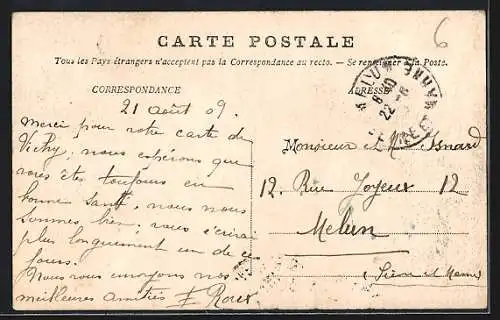 CARTE POSTALE
Tous les Pays étrangers n'acceptent pas la Correspondance au recto. — Se renseigner à la Poste.
CORRESPONDANCE
ADRESSE
6
21 août 09.
Merci pour notre carte de
Vichy, nous espérons que
vous êtes toujours en
bonne santé, nous nous
sommes bien, vous écrirai
plus longuement un de ce
jours.
Nous vous envoyons nos
meilleures amitiés Roux
Monsieur et Mme Isnard
12. Rue Joyeux 12
Melun
(Seine et Marne)
22 -8